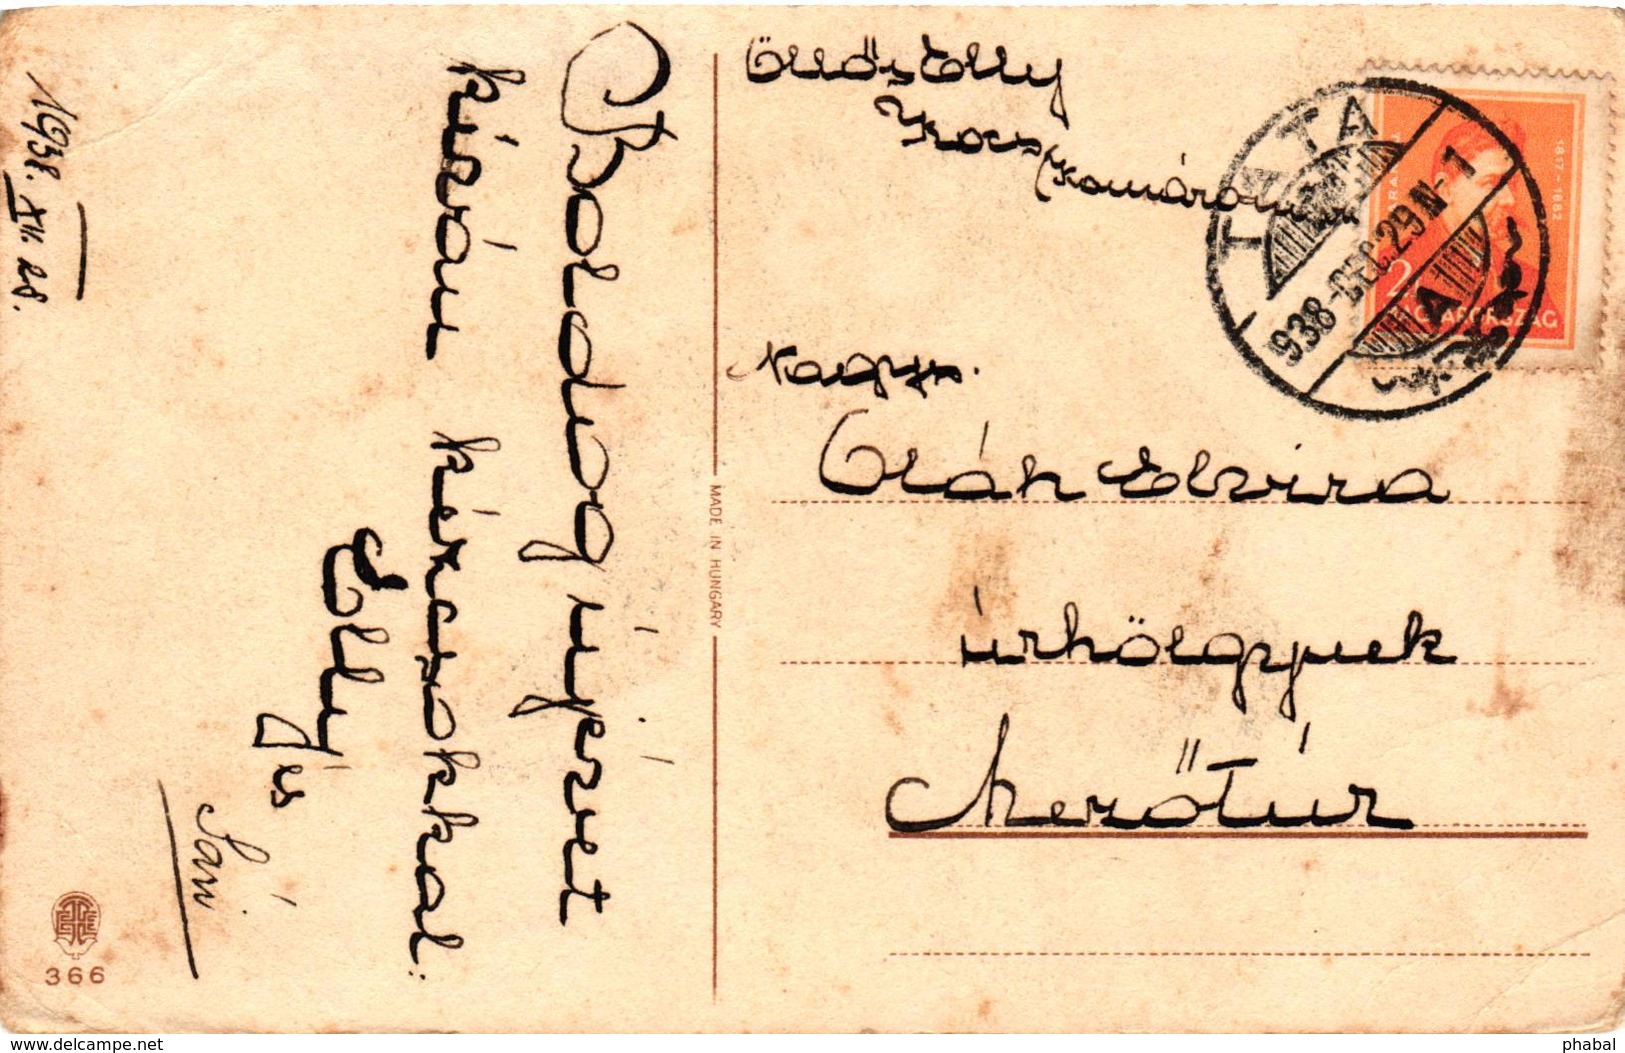 1938. XII. 28.
Boldog újévet
kíván kézcsókkal:
Elly
és
Sári
366
MADE IN HUNGARY
Elly
Kocs
(Komárom m.
Nagys.
Oláh Elvira
úrhölgynek
Mezőtúr
TATA
938-DEC.29 N- 1
A
1817-1882
2
MAGYARORSZÁG
www.delcampe.net
phabal